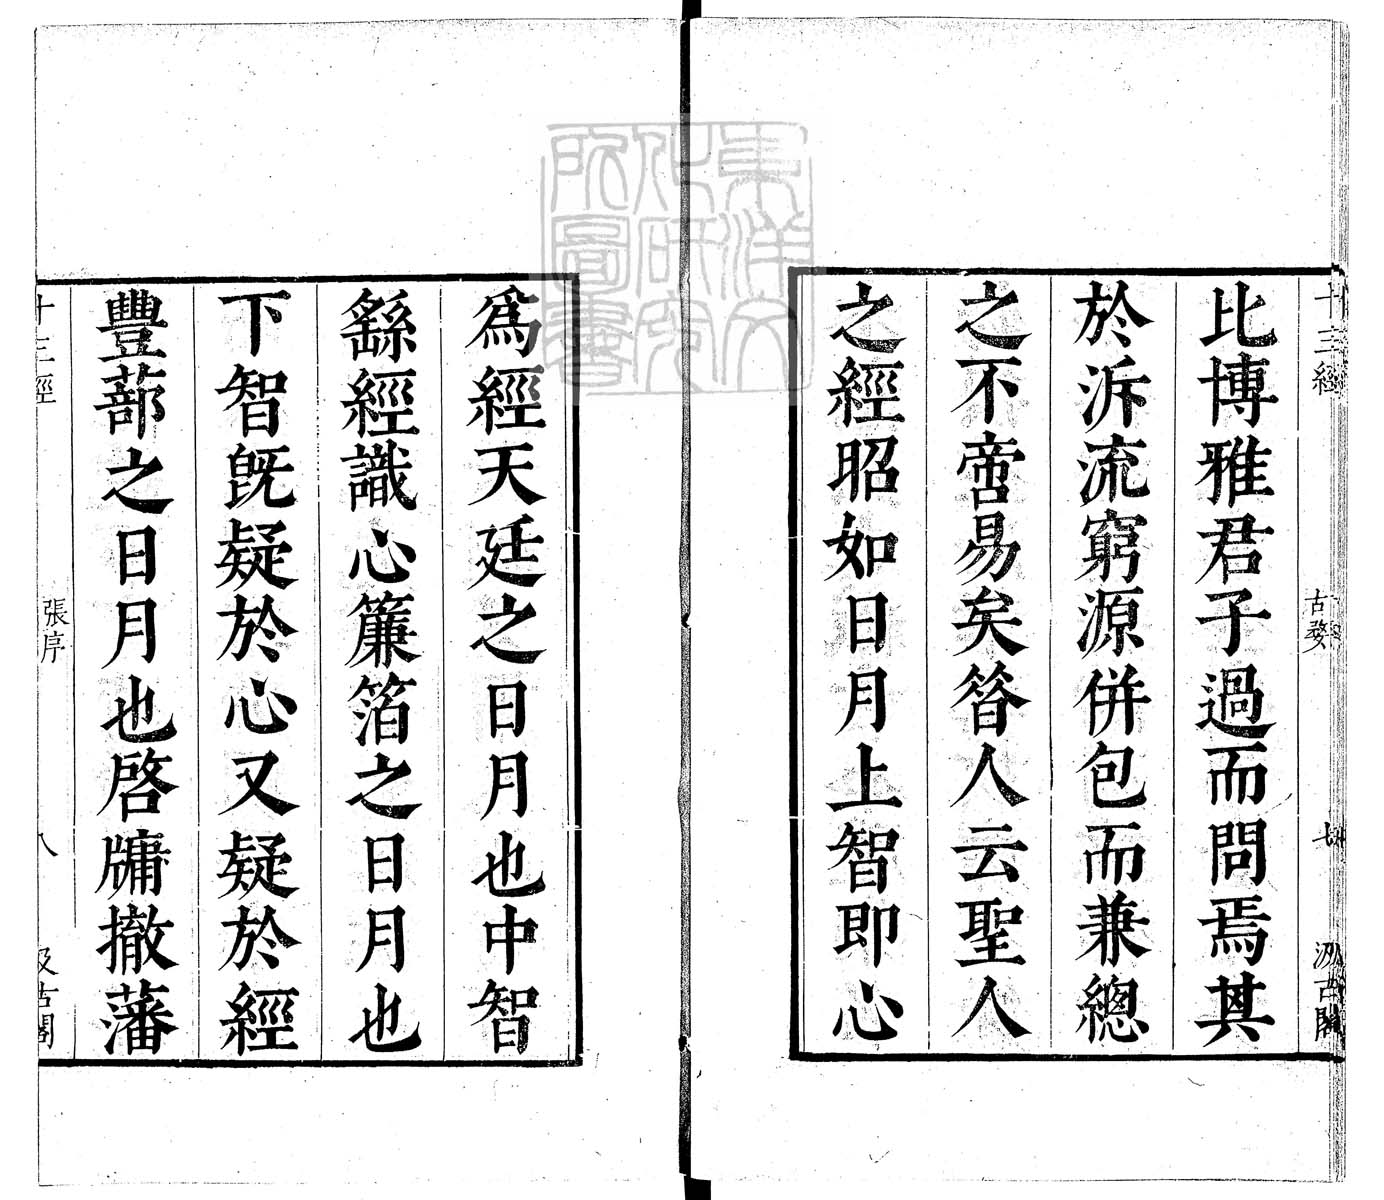 十三經 七 汲古閣
比博雅君子過而問焉其
於泝流窮源併包而兼總
之不啻易矣昝人云聖人
之經昭如日月上智即心
爲經天廷之日月也中智
繇經識心簾箔之日月也
下智旣疑於心又疑於經
豐蔀之日月也啓牗撤藩
十三經 張序 八 汲古閣
東洋文化研究所圖書